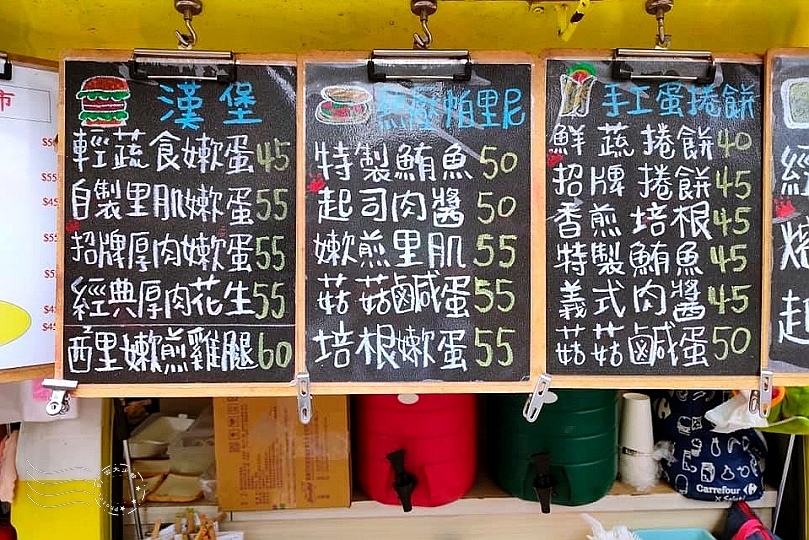 漢堡
輕蔬食嫩蛋45
自製里肌嫩蛋55
招牌厚肉嫩蛋55
經典厚肉花生55
酉里嫩煎雞腿60
熱壓帕里尼
特製鮪魚50
起司肉醬50
嫩煎里肌55
菇菇鹹蛋55
培根嫩蛋55
手工蛋捲餅
鮮蔬捲餅40
招牌捲餅45
香煎培根45
特製鮪魚45
義式肉醬45
菇菇鹹蛋50
市
起
Carrefour